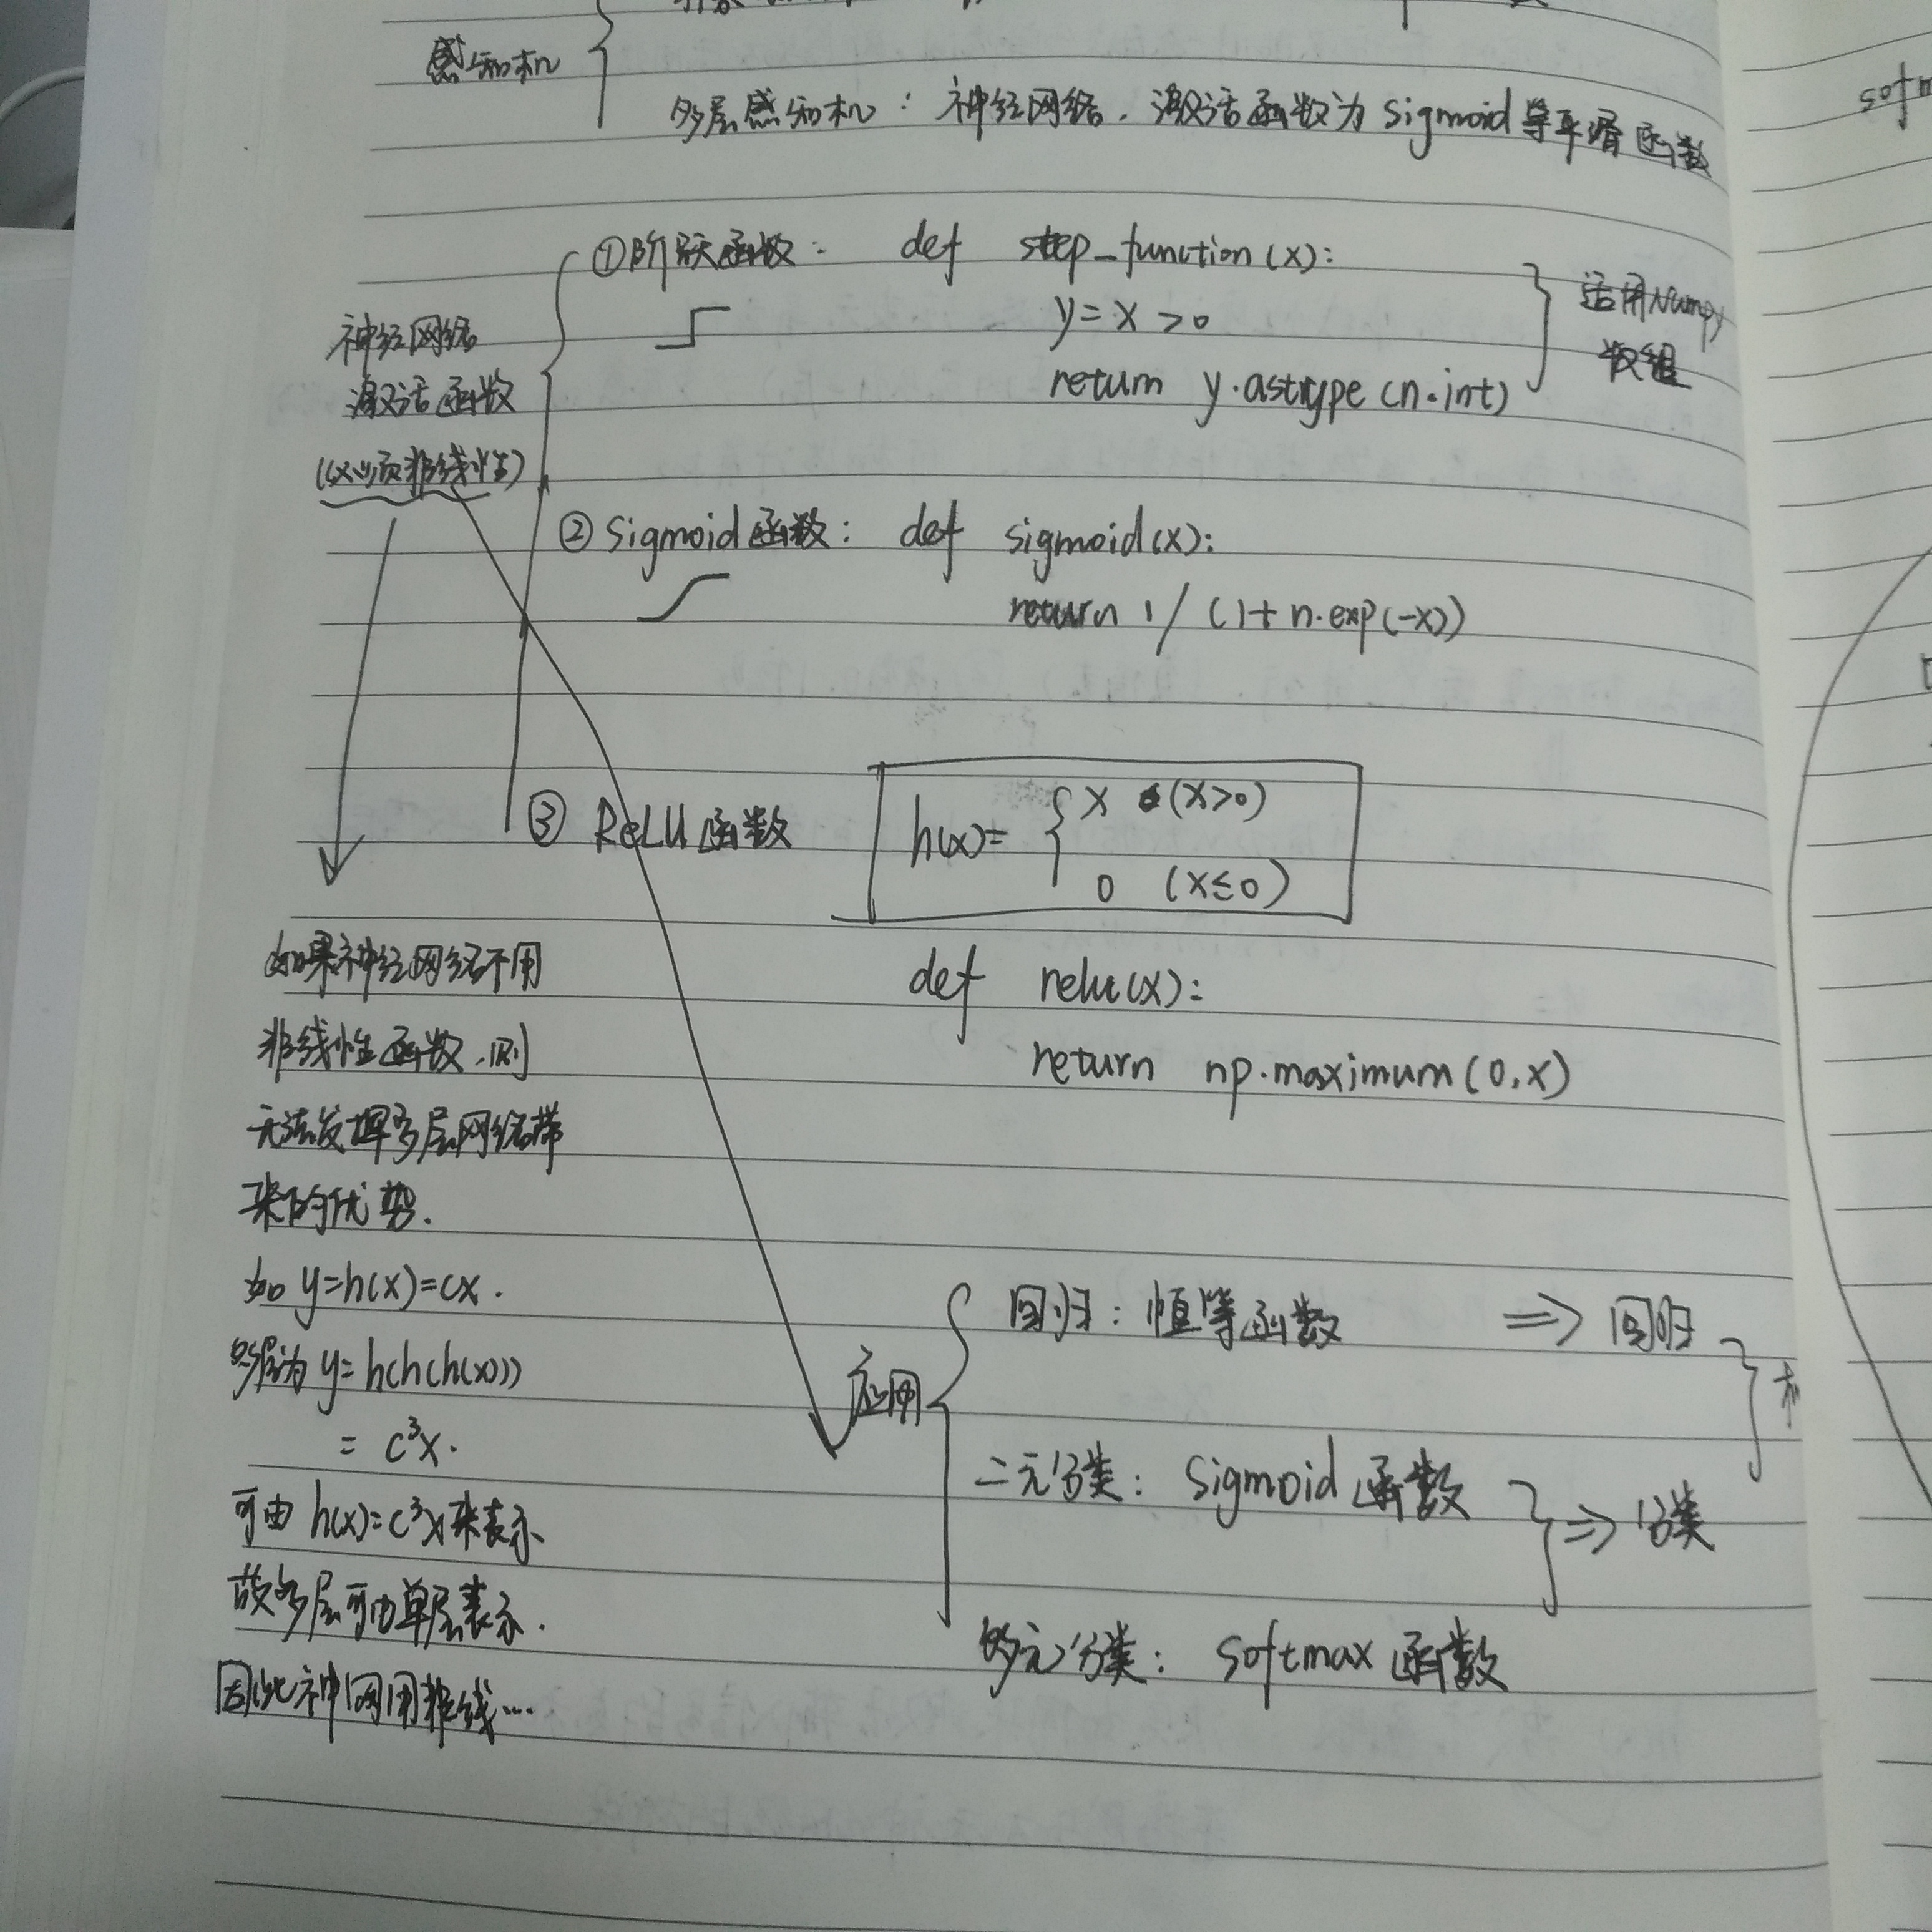 感知机
多层感知机：神经网络．激活函数为 sigmoid等平滑函数
神经网络
激活函数
(必须非线性)
①阶跃函数： def step_function(x):
y=x>0
return y.astype(n.int)
适用Numpy
数组
②Sigmoid函数： def sigmoid(x):
return 1/(1+n.exp(-x))
③ ReLU函数
h(x)= { x (x>0)
0 (x≤0)
def relu(x):
return np.maximum(0,x)
如果神经网络不用
非线性函数,则
无法发挥多层网络带
来的优势.
如 y=h(x)=cx.
多层为 y=h(h(h(x)))
= c³x.
可由 h(x)=c³x来表示
故多层可由单层表示.
因此神网用非线…
应用
回归：恒等函数 ⇒ 回归
二元分类：Sigmoid函数
⇒ 分类
多元分类：softmax函数